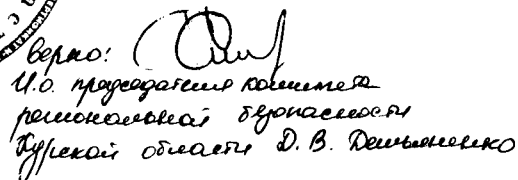 верно:
И.о. председателя комитета
региональной безопасности
Курской области Д. В. Демьяненко